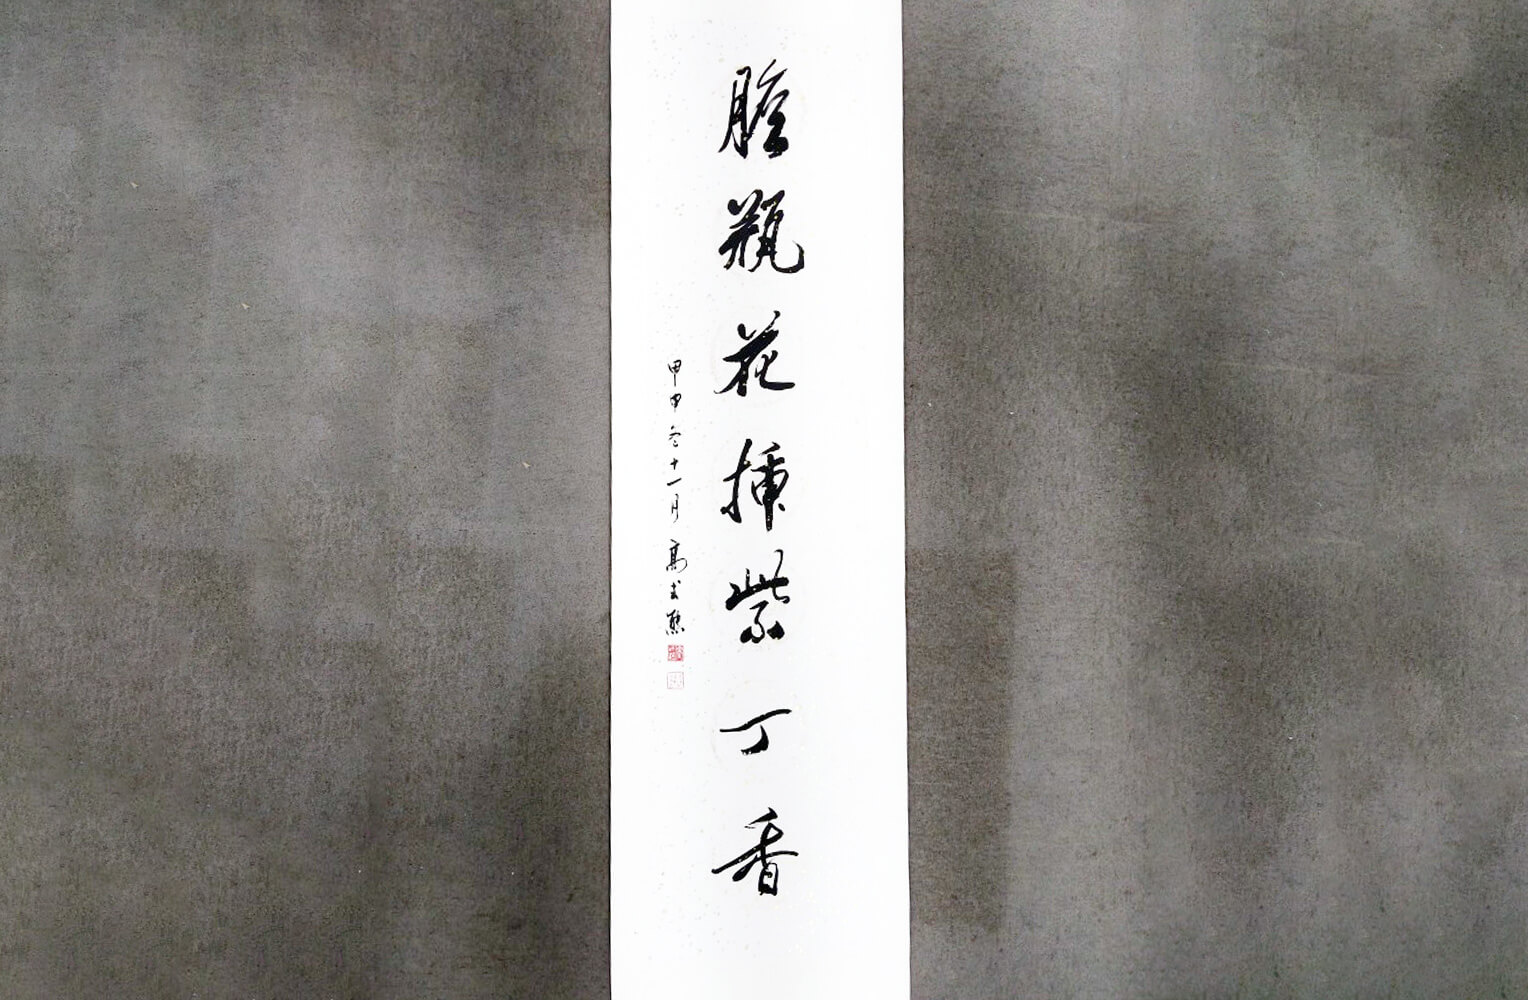 膽瓶花插紫丁香
甲申冬十一月 高式熊